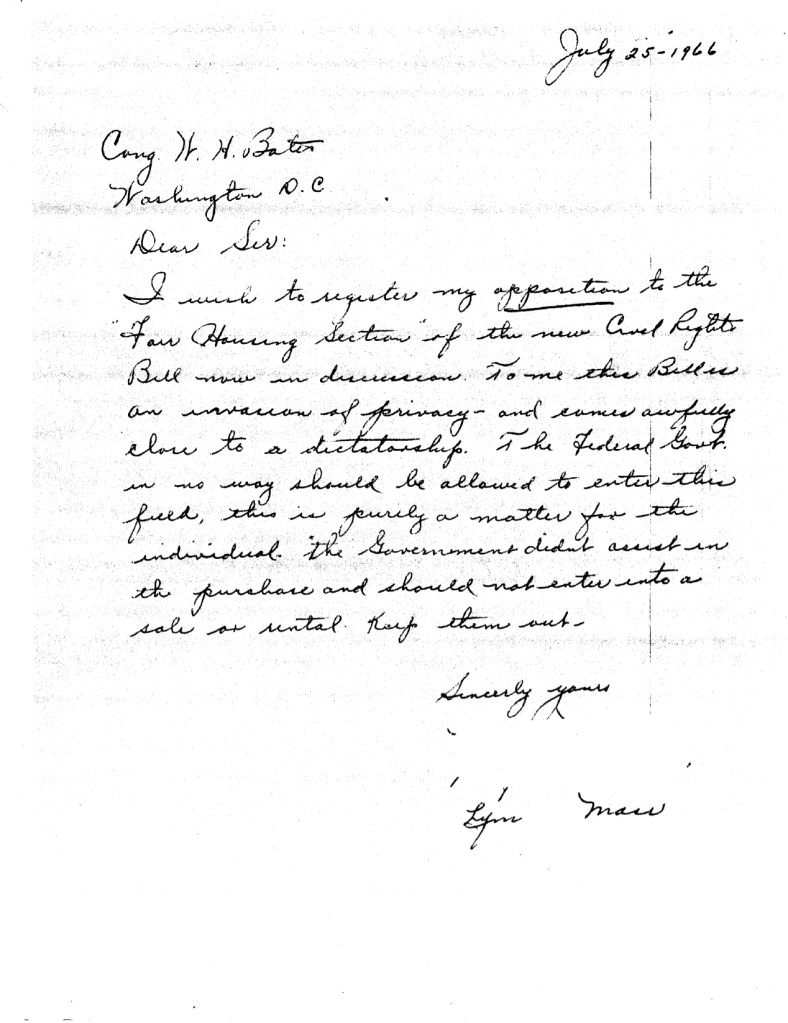 July 25-1966
Cong. W. H. Bates
Washington D.C
Dear Sir:
I wish to register my opposition to the
"Fair Housing Section" of the new Civil Rights
Bill now in discussion. To me this Bill is
an invasion of privacy - and comes awfully
close to a dictatorship. The Federal Govt.
in no way should be allowed to enter this
field, this is purely a matter for the
individual. The Government didnt assist in
the purchase and should not enter into a
sale or rental. Keep them out-
Sincerly yours
Lynn Mass